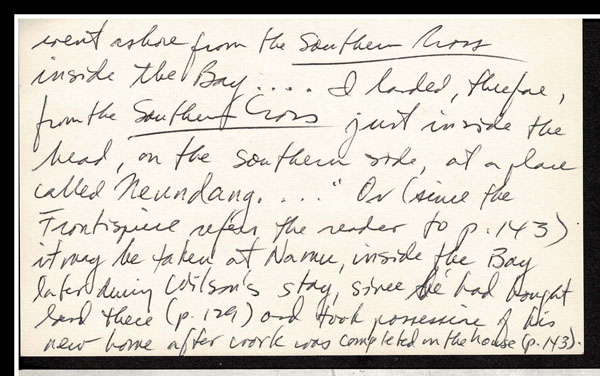 went ashore from the Southern Cross
inside the Bay.... I landed, therefore,
from the Southern Cross just inside the
head, on the southern side, at a place
called Neundang. ..." Or (since the
Frontispiece refers the reader to p.143)
it may be taken at Namu, inside the Bay
later during Wilson's stay, since he had bought
land there (p.129) and took possession of his
new home after work was completed on the house (p.143).